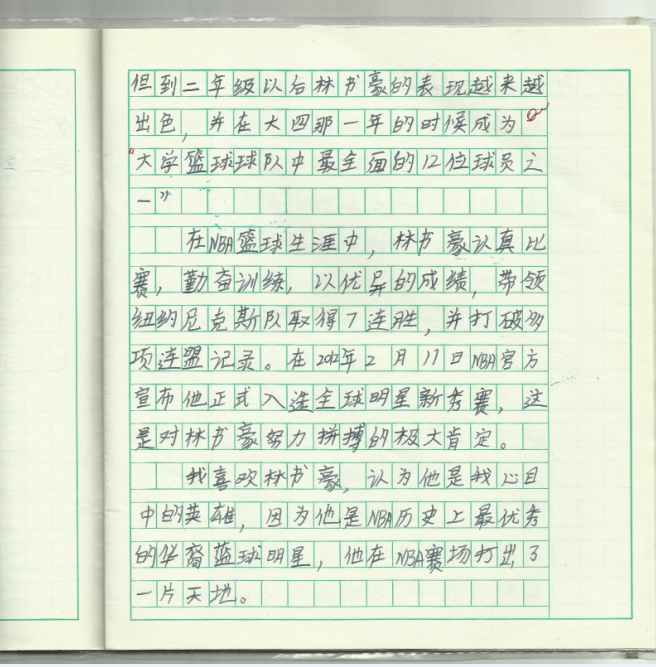 但到二年级以后林书豪的表现越来越
出色，并在大四那一年的时候成为
“大学篮球球队中最全面的12位球员之
一”
在NBA篮球生涯中，林书豪认真比
赛，勤奋训练，以优异的成绩，带领
纽约尼克斯队取得7连胜，并打破多
项连盟记录。在2012年2月17日NBA官方
宣布他正式入选全球明星新秀赛，这
是对林书豪努力拼搏的极大肯定。
我喜欢林书豪，认为他是我心目
中的英雄，因为他是NBA历史上最优秀
的华裔蓝球明星，他在NBA赛场打出了
一片天地。